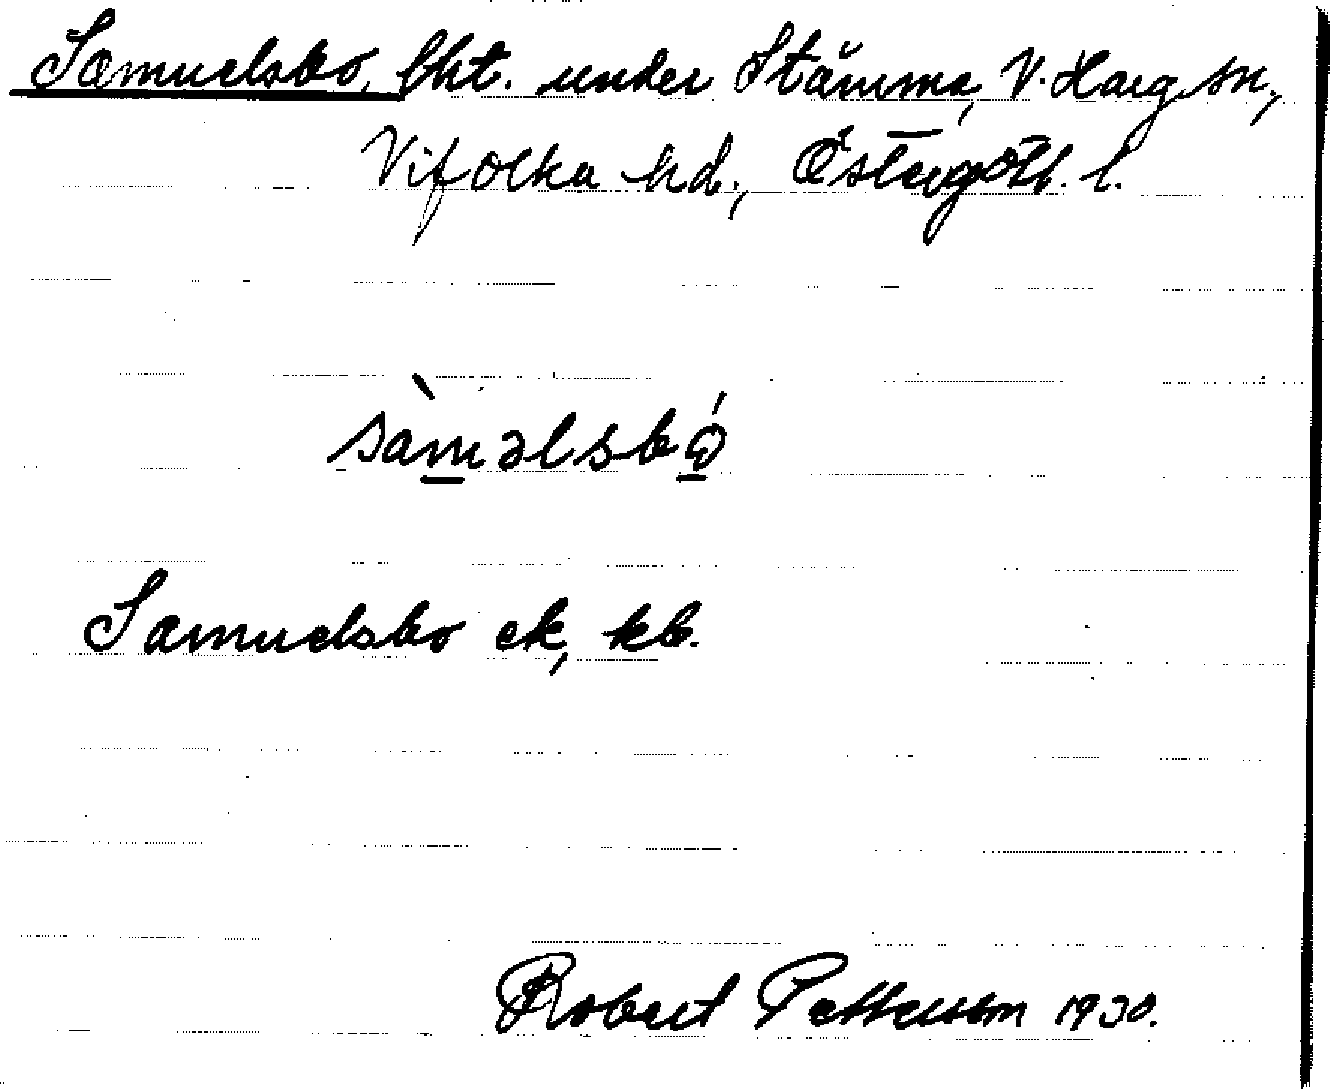 Samuelsbo, lht. under Stämma, V. Harg sn,
Vifolka hd., Östergötl. l.
sàməlsbọ́
Samuelsbo ek, kb.
Robert Pettersson 1930.